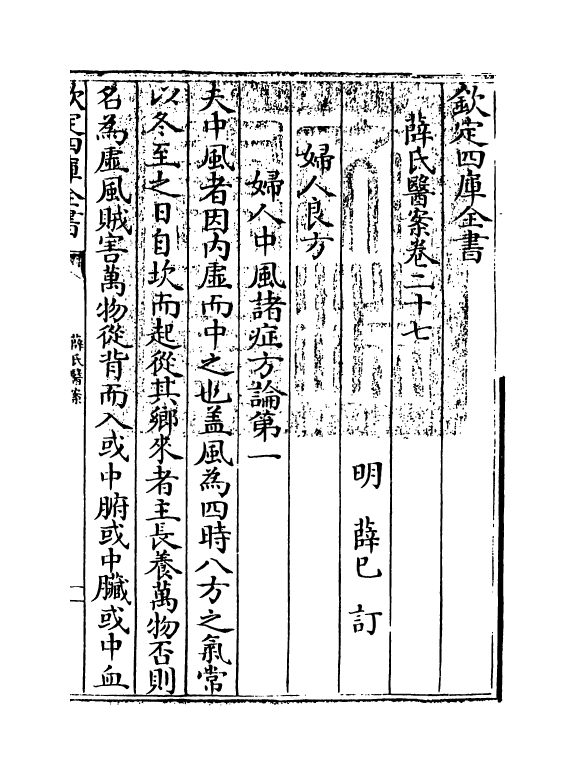 欽定四庫全書
薛氏醫案卷二十七
明 薛己 訂
婦人良方
婦人中風諸症方論第一
夫中風者因内虚而中之也盖風為四時八方之氣常
以冬至之日自坎而起從其鄉來者主長養萬物否則
名為虚風賊害萬物從背而入或中腑或中臟或中血
欽定四庫全書
薛氏醫案
一